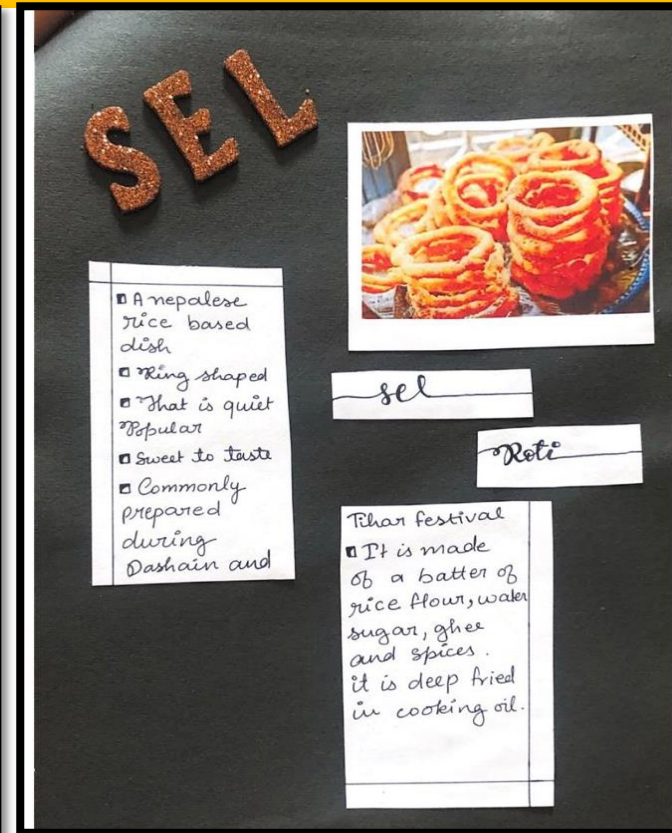 SEL
A nepalese
rice based
dish
Ring shaped
That is quiet
Popular
Sweet to taste
Commonly
prepared
during
Dashain and
sel
Roti
Tihar festival
It is made
of a batter of
rice flour, water
sugar, ghee
and spices.
it is deep fried
in cooking oil.